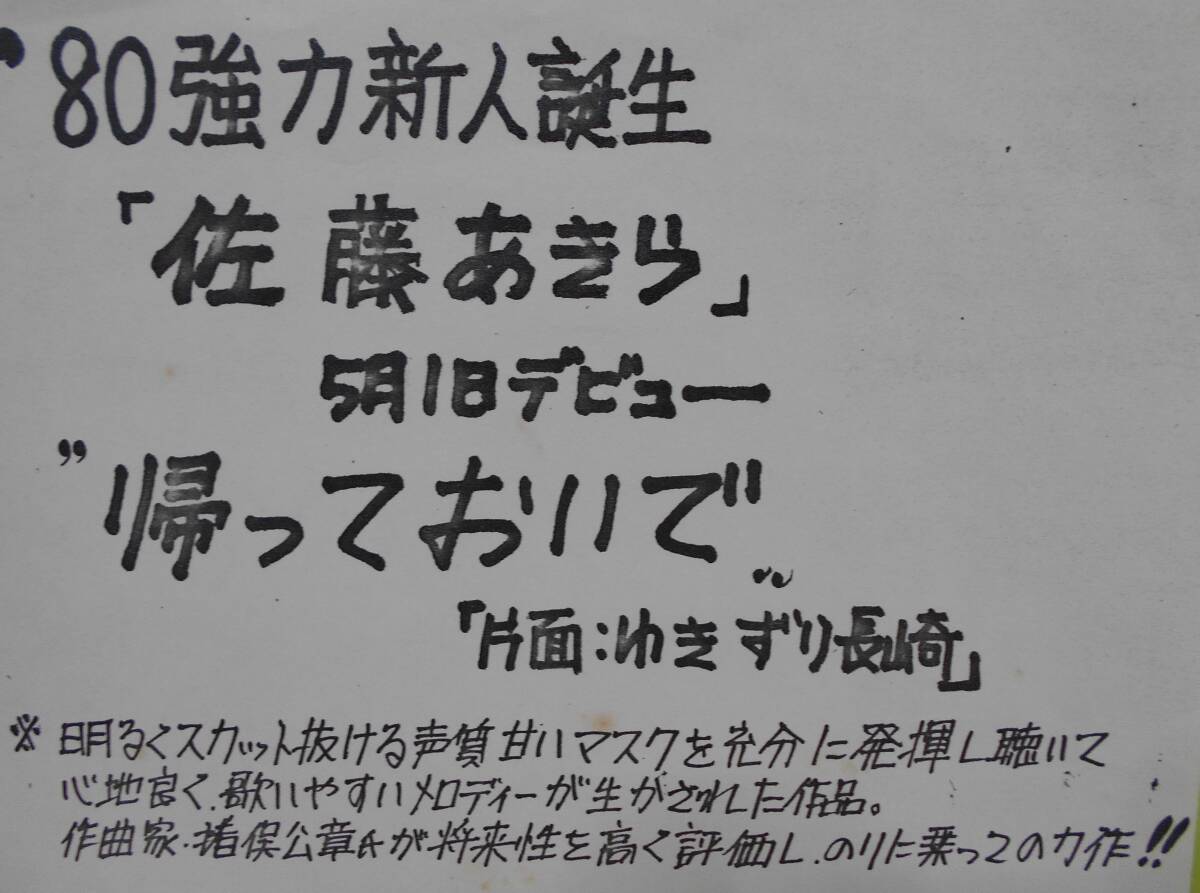 '80強力新人誕生
「佐藤あきら」
5月1日デビュー
"帰っておいで"
「片面:ゆきずり長崎」
※明るくスカッと抜ける声質甘いマスクを充分に発揮し、聴いて
心地良く、歌いやすいメロディーが生がされた作品。
作曲家・猪俣公章氏が将来性を高く評価し、のりに乗っての力作!!